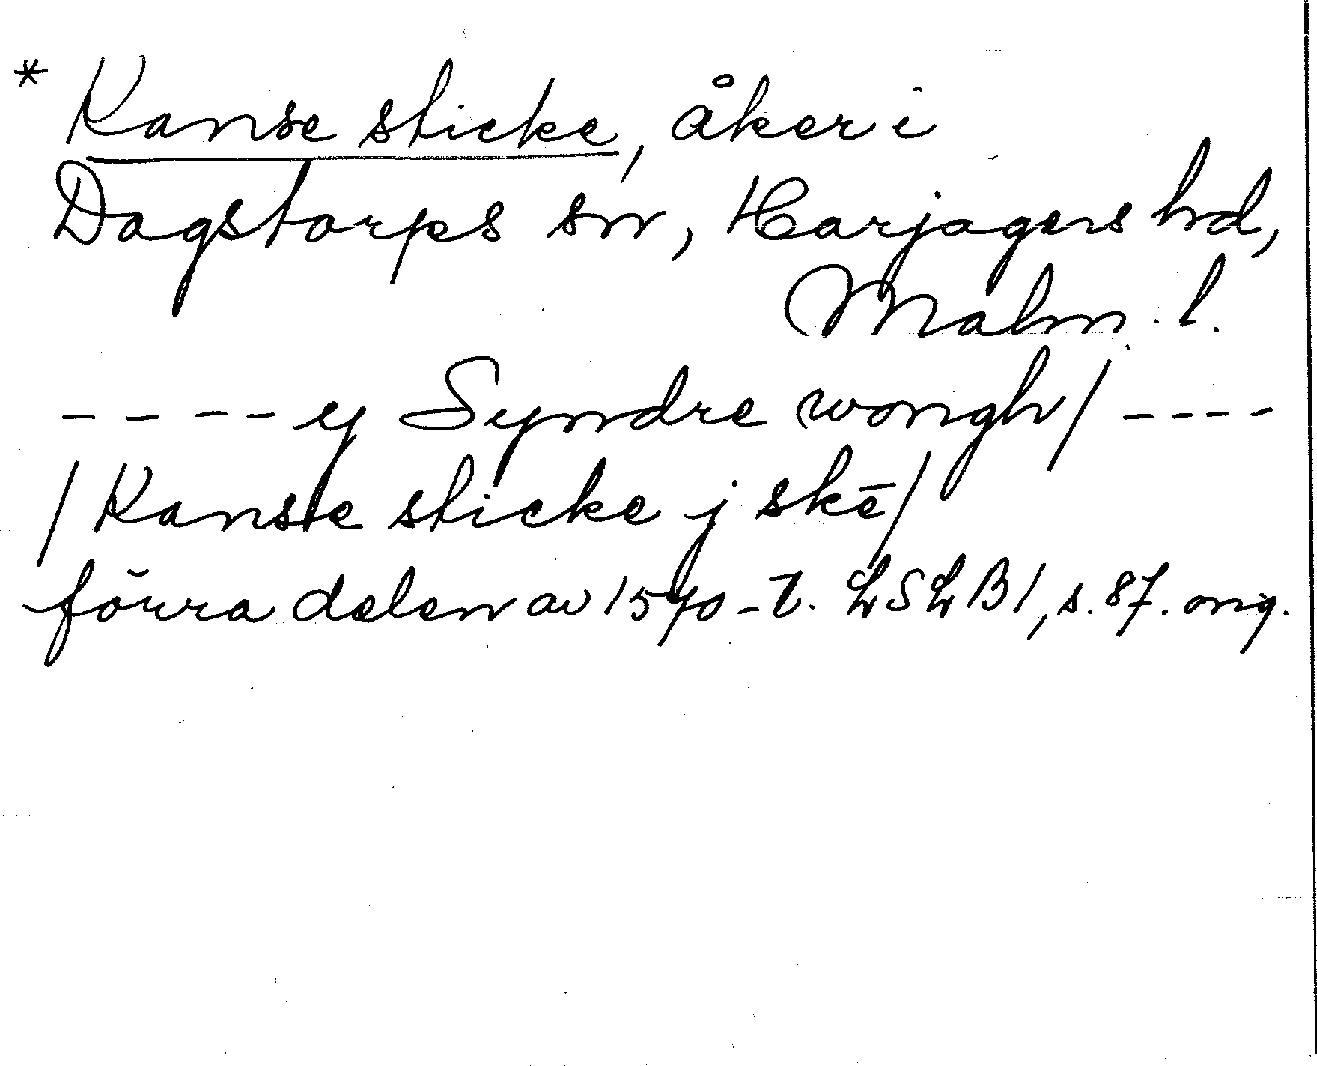 * Kanse sticke, åker i
Dagstorps sn, Harjagers hd,
Malm. l.
---- ÿ Syndre wongh/ ----
/Kanse sticke j skē/
förra delen av 1570-t. LSLB1, s. 87. orig.